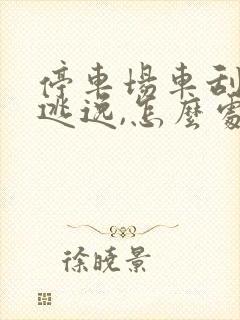 停車場車刮
逃逸,怎麼處
徐曉景